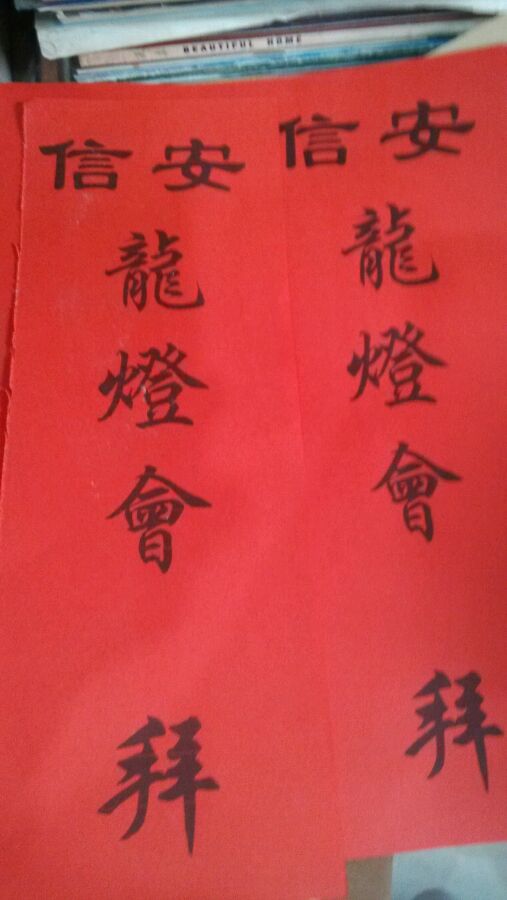 BEAUTIFUL HOME
信安
龍燈會
拜
信安
龍燈會
拜